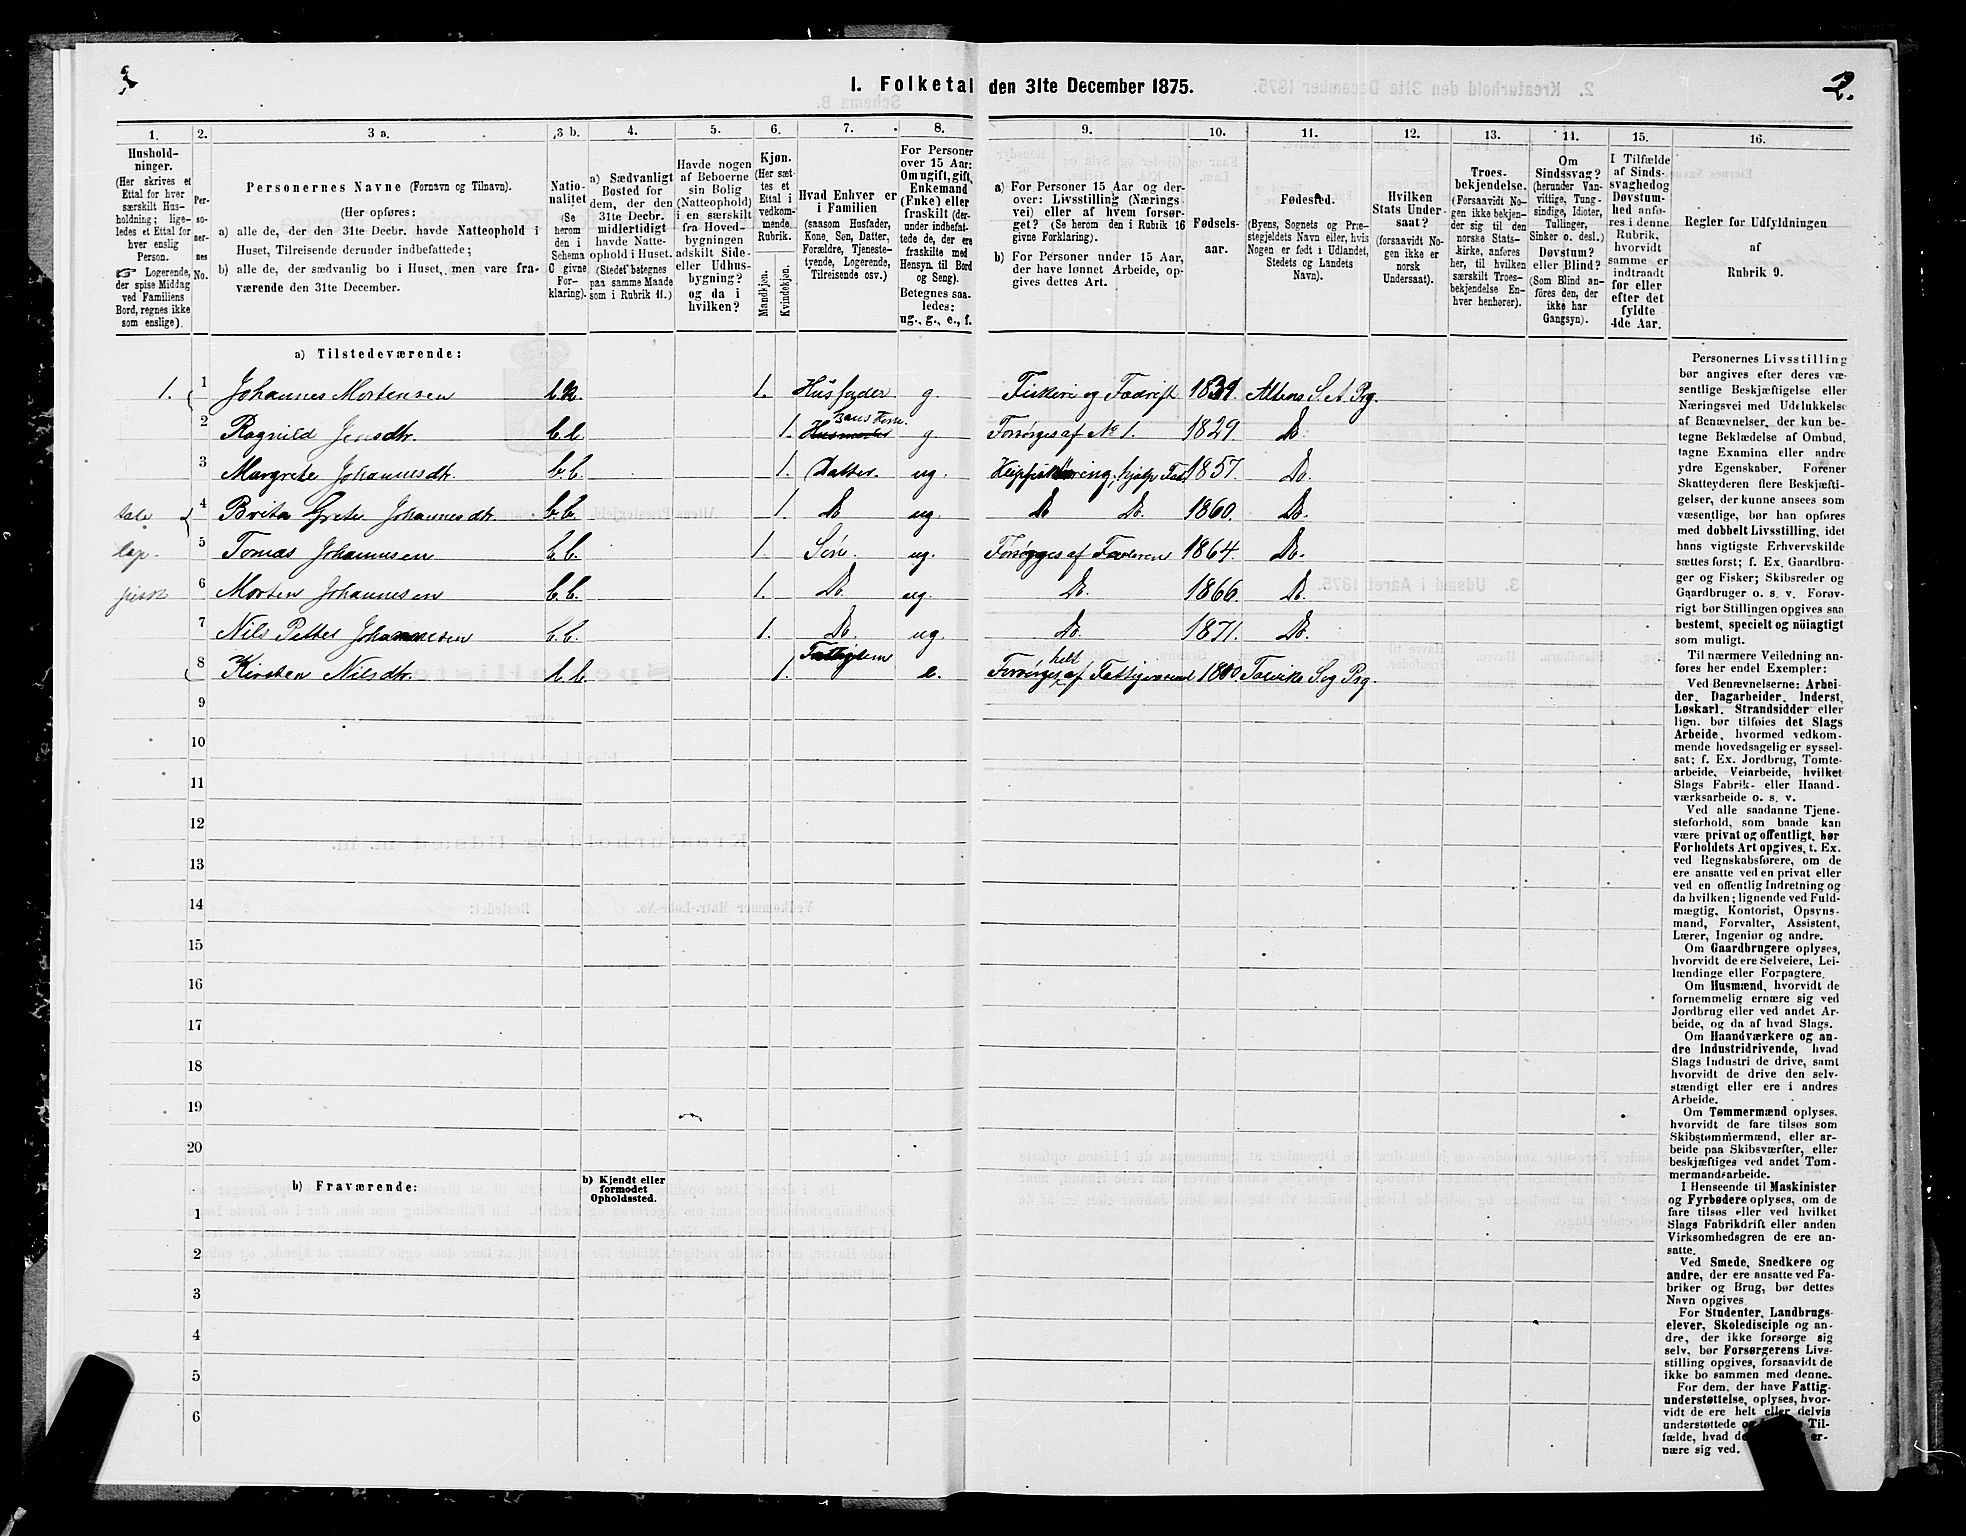 3
1. Folketal den 31te December 1875.
2.
1. 2. 3 a. 3 b. 4. 5. 6. 7. 8. 9. 10. 11. 12. 13. 14. 15. 16.
Hushold-
ninger.
(Her skrives et
Ettal for hver
særskilt Hus-
holdning; lige-
ledes et Ettal for
hver enslig
Person.
☞ Logerende,
der spise Middag
ved Familiens
Bord, regnes ikke
som enslige).
Per-
so-
ner-
nes
No.
Personernes Navne (Fornavn og Tilnavn).
(Her opføres:
a) alle de, der den 31te Decbr. havde Natteophold i
Huset, Tilreisende derunder indbefattede;
b) alle de, der sædvanlig bo i Huset, men vare fra-
værende den 31te December.
Natio-
nalitet
(Se
herom
den i
Schema
C givne
For-
klaring).
a) Sædvanligt
Bosted for
dem, der den
31te Decbr.
midlertidigt
havde Natte-
ophold i Huset.
(Stedet betegnes
paa samme Maade
som i Rubrik 11.)
Havde nogen
af Beboerne
sin Bolig
(Natteophold)
i en særskilt
fra Hoved-
bygningen
adskilt Side-
eller Udhus-
bygning?
og da i
hvilken?
Kjøn.
(Her sæt-
tes et
Ettal i
vedkom-
mende
Rubrik.
Mandkjøn.
Kvindekjøn.
Hvad Enhver er
i Familien
(saasom Husfader,
Kone, Søn, Datter,
Forældre, Tjeneste-
tyende, Logerende,
Tilreisende osv.)
For Personer
over 15 Aar:
Om ugift, gift,
Enkemand
(Enke) eller
fraskilt (der-
under indbefat-
tede de, der ere
fraskilte med
Hensyn til Bord
og Seng).
Betegnes saa-
ledes:
ug., g., e., f.
a) For Personer 15 Aar og der-
over: Livsstilling (Nærings-
vei) eller af hvem forsør-
get? (Se herom den i Rubrik 16
givne Forklaring).
b) For Personer under 15 Aar,
der have lønnet Arbeide, op-
gives dettes Art.
Fødsels-
aar.
Fødested.
(Byens, Sognets og Præ-
stegjeldets Navn eller, hvis
Nogen er født i Udlandet,
Stedets og Landets
Navn).
Hvilken
Stats Under-
saat?
(forsaavidt No-
gen ikke er
norsk
Undersaat).
Troes-
bekjendelse.
(Forsaavidt No-
gen ikke bekjen-
der sig til den
norske Stats-
kirke, anføres
her, til hvilken
særskilt Troes-
bekjendelse En-
hver henhører).
Om
Sindssvag?
(herunder Van-
vittige, Tung-
sindige, Idioter,
Tullinger,
Sinker o. desl.)
Døvstum?
eller Blind?
(Som Blind an-
føres den, der
ikke har
Gangsyn).
I Tilfælde
af Sinds-
svaghed og
Døvstum-
hed anfø-
res i denne
Rubrik,
hvorvidt
samme er
indtraadt
før eller
efter det
fyldte
4de Aar.
Regler for Udfyldningen
af
Rubrik 9.
a) Tilstedeværende:
1. 1 Johannes Mortensen 1. Husfader g. Fiskeri og Fædrift 1831 Altens S. A. Prg.
2 Ragnild Jensdtr. 1. Husmoder hans Kone g Forsørges af No 1. 1829. Do.
3 Margrete Johannesdtr. 1. Datter. ug. 1857. Do.
4 Brita Grete Johannesdtr. 1 Do ug. Do Do. 1860. Do.
5 Tomas Johannesen 1. Søn ug. Forsørges af Faderen 1864. Do.
6 Morten Johannesen 1. Do. ug. Do. 1866. Do.
7 Nils Petter Johannesen 1. Do. ug. Do. 1871. Do.
8 Kirsten Nilsdtr. 1. Fattiglem e. Forsørges helt af Fattigvæsenet 1800 Talviks Sog Prg.
9
10
11
12
13
14
15
16
17
18
19
20
b) Fraværende:
b) Kjendt eller
formodet
Opholdssted.
1
2
3
4
5
6
Personernes Livsstilling
bør angives efter deres væ-
sentlige Beskjæftigelse eller
Næringsvei med Udelukkelse
af Benævnelser, der kun be-
tegne Beklædelse af Ombud,
tagne Examina eller andre
ydre Egenskaber. Forener
Skatteyderen flere Beskjæfti-
gelser, der kunne ansees som
væsentlige, bør han opføres
med dobbelt Livsstilling, idet
hans vigtigste Erhvervskilde
sættes først; f. Ex. Gaardbru-
ger og Fisker; Skibsreder og
Gaardbruger o. s. v. Forøv-
rigt bør Stillingen opgives saa
bestemt, specielt og nöiagtigt
som muligt.
Til nærmere Veiledning an-
føres her endel Exempler:
Ved Benævnelserne: Arbei-
der, Dagarbeider, Inderst,
Løskarl, Strandsidder eller
lign. bør tilføies det Slags
Arbeide, hvormed vedkom-
mende hovedsagelig er syssel-
sat; f. Ex. Jordbrug, Tomte-
arbeide, Veiarbeide, hvilket
Slags Fabrik- eller Haand-
værksarbeide o. s. v.
Ved alle saadanne Tjene-
steforhold, som baade kan
være privat og offentligt, bør
Forholdets Art opgives, t. Ex.
ved Regnskabsførere, om de
ere ansatte ved en privat eller
ved en offentlig Indretning og
da hvilken; lignende ved Fuld-
mægtig, Kontorist, Opsyns-
mand, Forvalter, Assistent,
Lærer, Ingeniør og andre.
Om Gaardbrugere oplyses,
hvorvidt de ere Selveiere, Lei-
lændinge eller Forpagtere.
Om Husmænd, hvorvidt de
fornemmelig ernære sig ved
Jordbrug eller ved andet Ar-
beide, og da af hvad Slags.
Om Haandværkere og an-
dre Industridrivende, hvad
Slags Industri de drive, samt
hvorvidt de drive den selv-
stændigt eller ere i andres
Arbeide.
Om Tømmermænd oplyses,
hvorvidt de fare tilsøs som
Skibstømmermænd, eller ar-
beide paa Skibsværfter, eller
beskjæftiges ved andet Tøm-
mermandsarbeide.
I Henseende til Maskinister
og Fyrbødere oplyses, om de
fare tilsøs eller ved hvilket
Slags Fabrikdrift eller anden
Virksomhedsgren de ere an-
satte.
Ved Smede, Snedkere og
andre, der ere ansatte ved Fa-
briker og Brug, bør dettes
Navn opgives.
For Studenter, Landbrugs-
elever, Skoledisciple og an-
dre, der ikke forsørge sig
selv, bør Forsørgerens Livs-
stilling opgives, forsaavidt de
ikke bo sammen med denne.
For dem, der have Fattig-
understøttelse, oplyses, hvor-
vidt de ere helt eller delvis
understøttede Til-
fælde, hvad er-
nære sig ved.